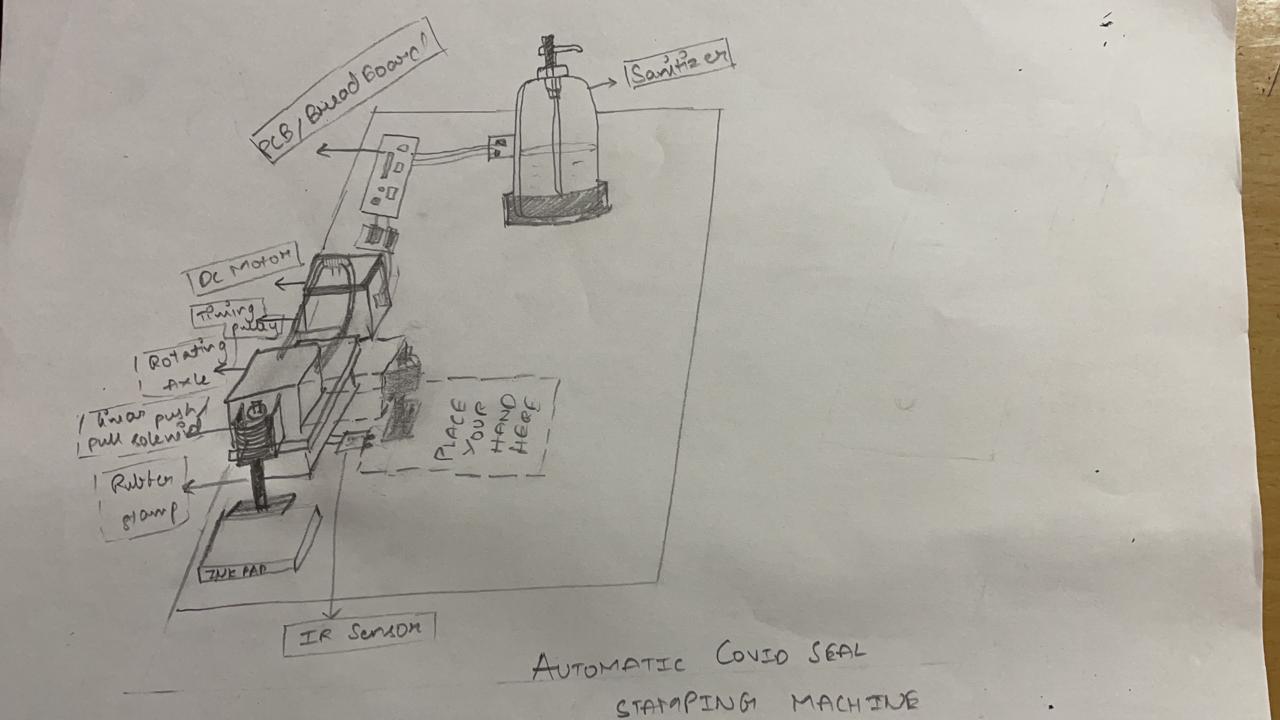 PCB/Bread Board
Sanitizer
DC Motor
Timing
pulley
Rotating
Axle
linear push
pull solenoid
Rubber
stamp
PLACE
YOUR
HAND
HERE
INK PAD
IR Sensor
AUTOMATIC COVID SEAL
STAMPING MACHINE